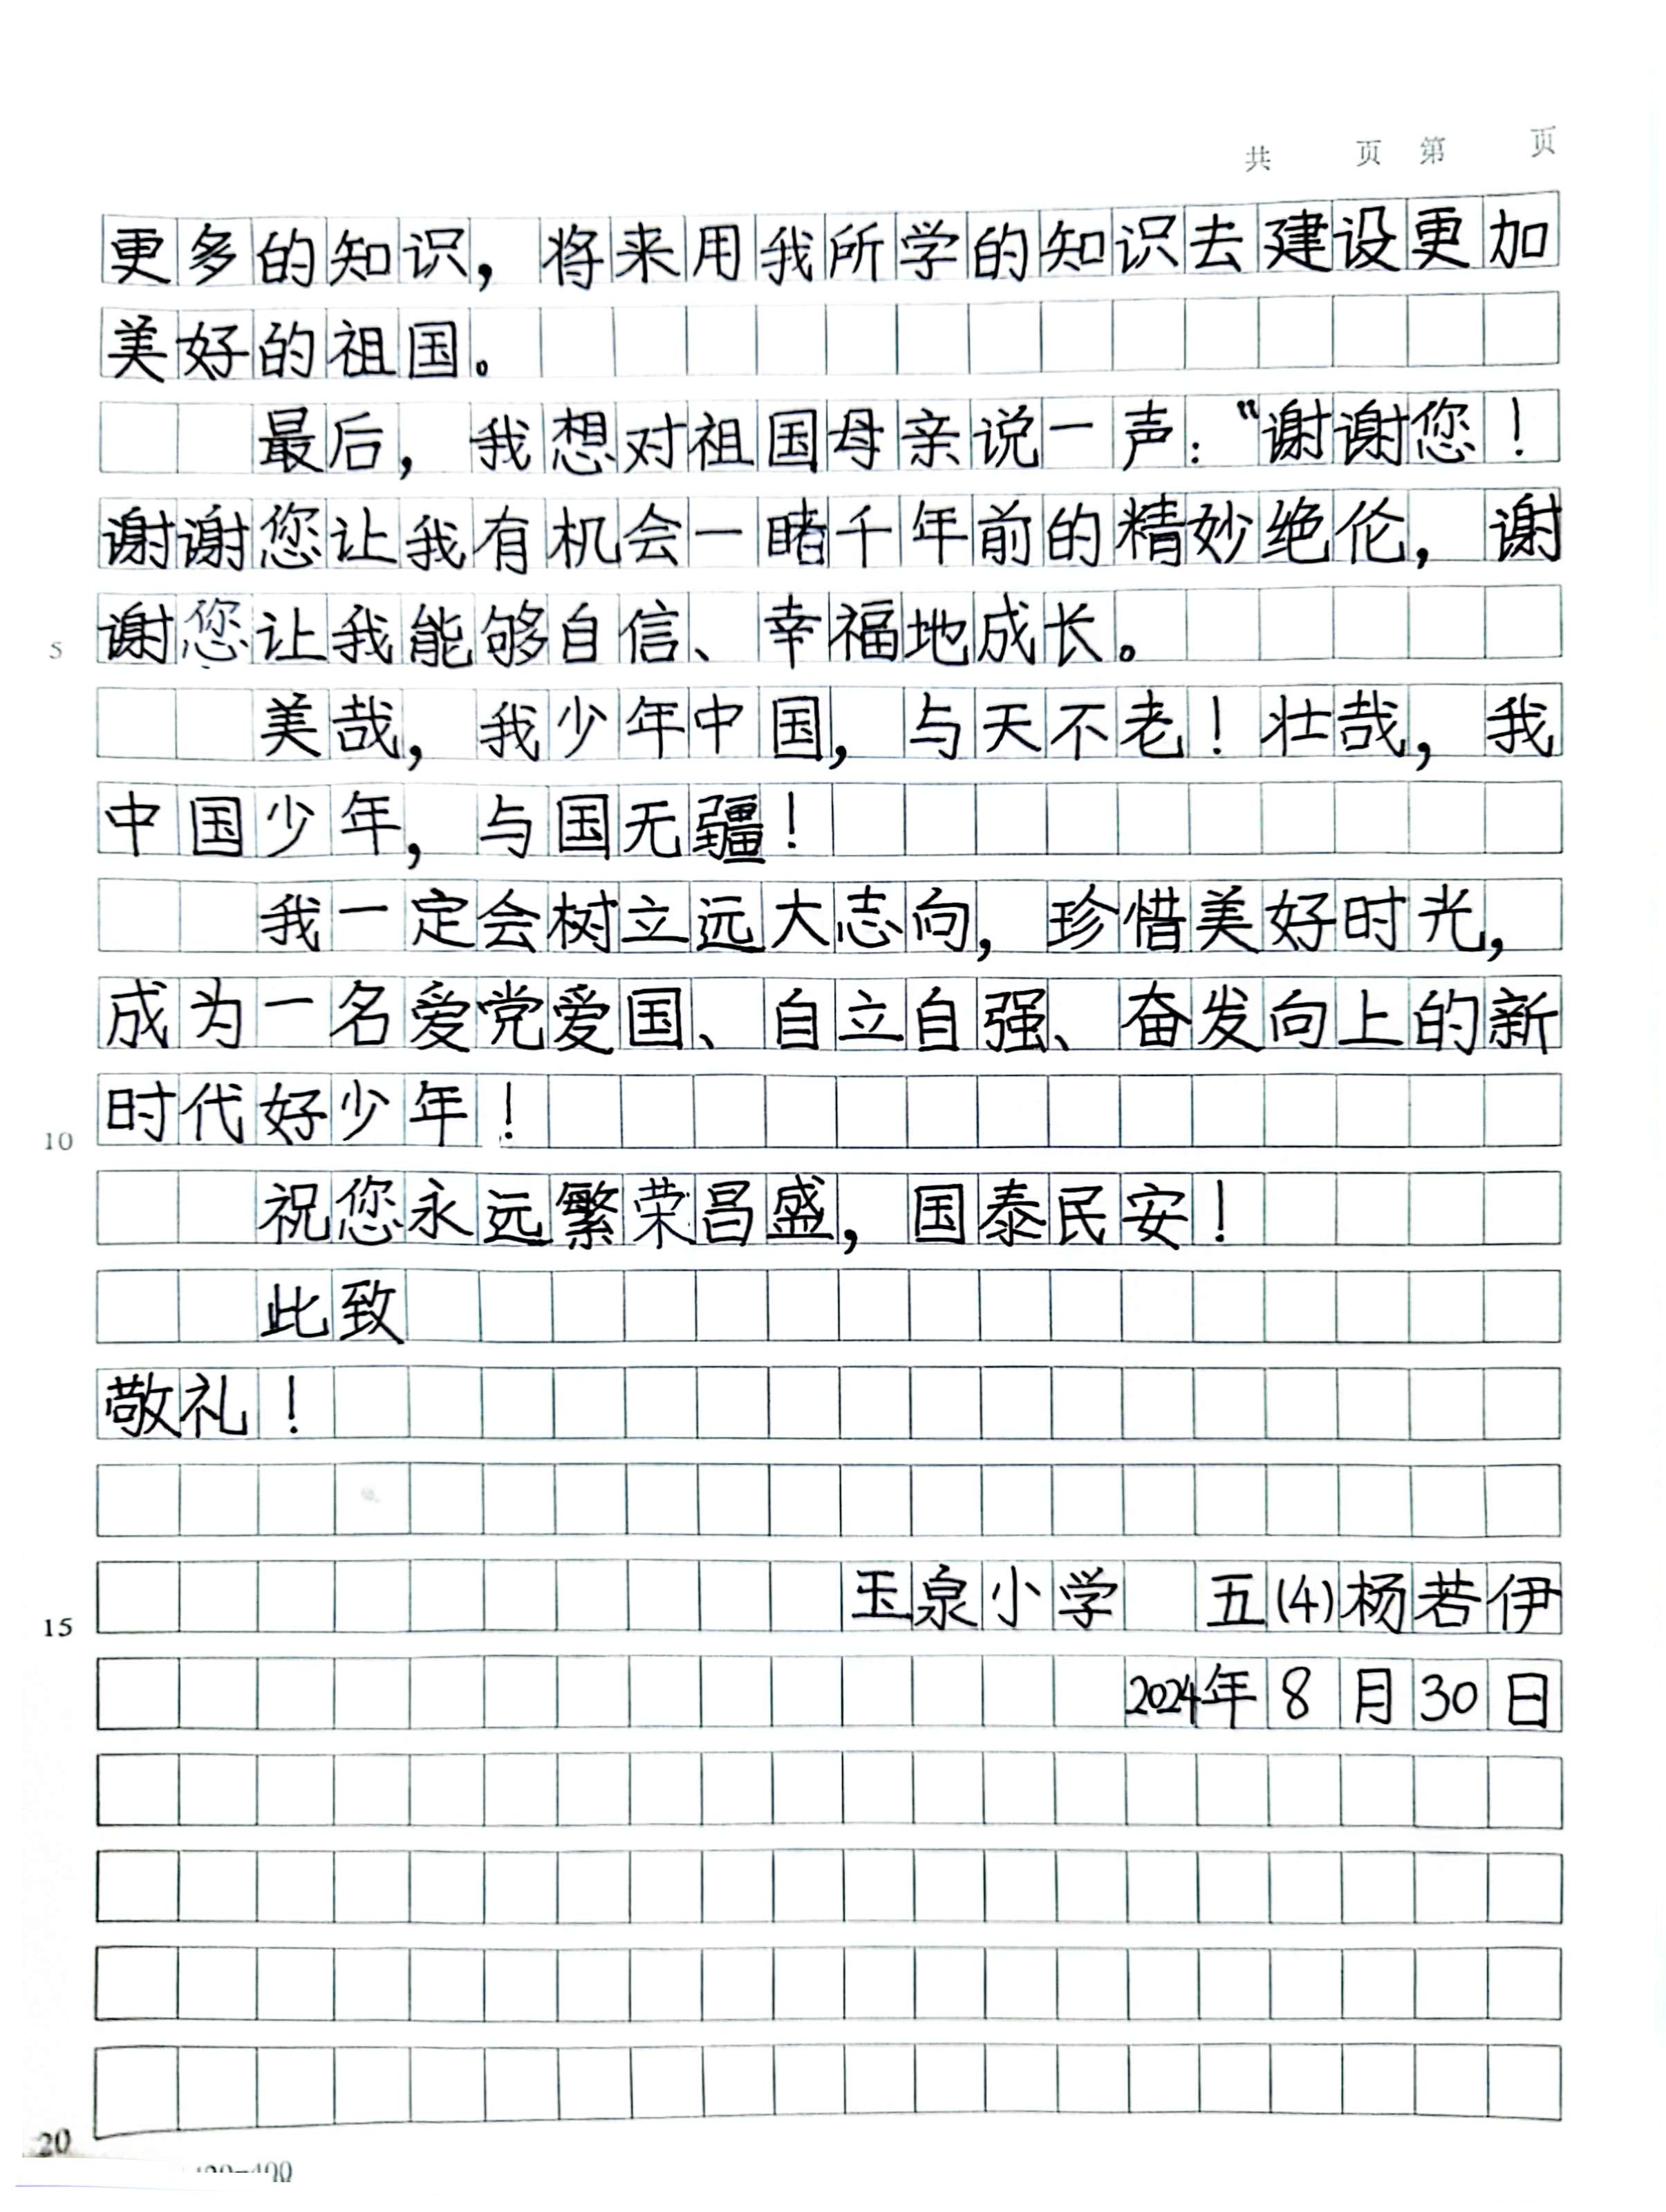 共 页 第 页
更多的知识，将来用我所学的知识去建设更加
美好的祖国。
最后，我想对祖国母亲说一声：“谢谢您！
谢谢您让我有机会一睹千年前的精妙绝伦，谢
5 谢您让我能够自信、幸福地成长。
美哉，我少年中国，与天不老！壮哉，我
中国少年，与国无疆！
我一定会树立远大志向，珍惜美好时光，
成为一名爱党爱国、自立自强、奋发向上的新
10 时代好少年！
祝您永远繁荣昌盛，国泰民安！
此致
敬礼！
15 玉泉小学 五(4)杨若伊
2024年8月30日
20